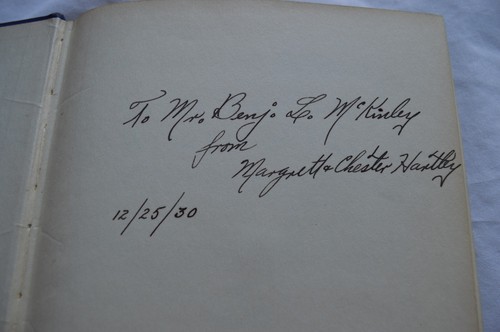 To Mr. Benj. L. McKinley
from
Margrett & Chester Hartley
12/25/30